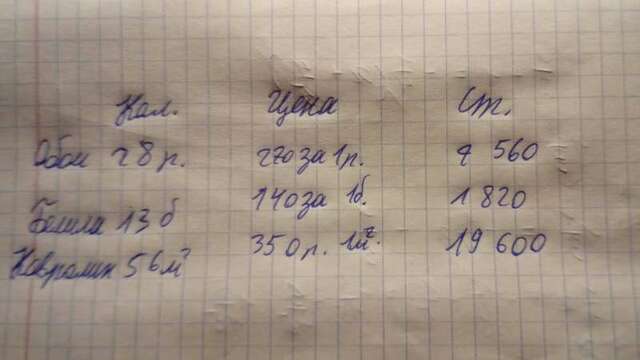 Кол. Цена Ст.
Обои 28 р. 270 за 1р. 7 560
Белила 13 б 140 за 1б. 1 820
Ковролин 56 м² 350р. 1м². 19 600